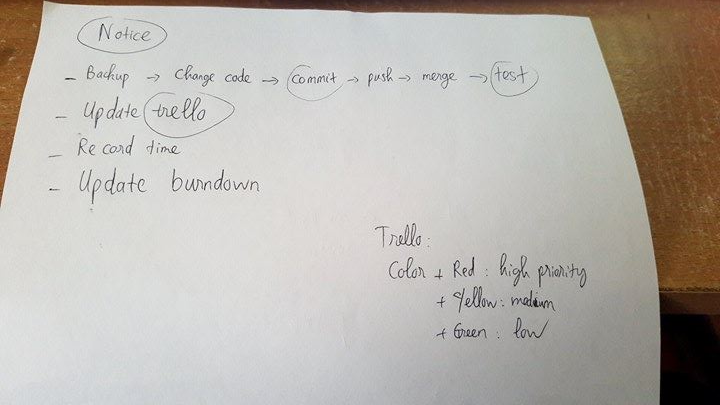 Notice
- Backup → Change code → commit → push → merge → test
- Update trello
- Record time
- Update burndown
Trello:
Color + Red: high priority
+ Yellow: medium
+ Green: low